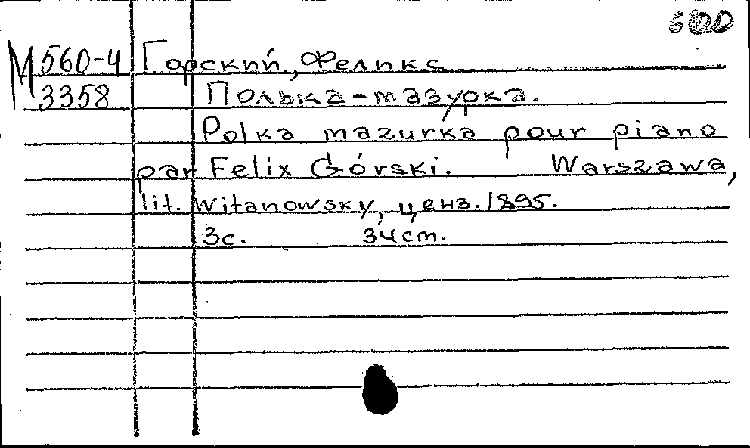 М 560-4 Горский, Феликс
3358 Полька-мазурка.
Polka mazurka pour piano
par Felix Górski. Warszawa,
lit. Witanowsky, ценз. 1895.
3с. 34 cm.